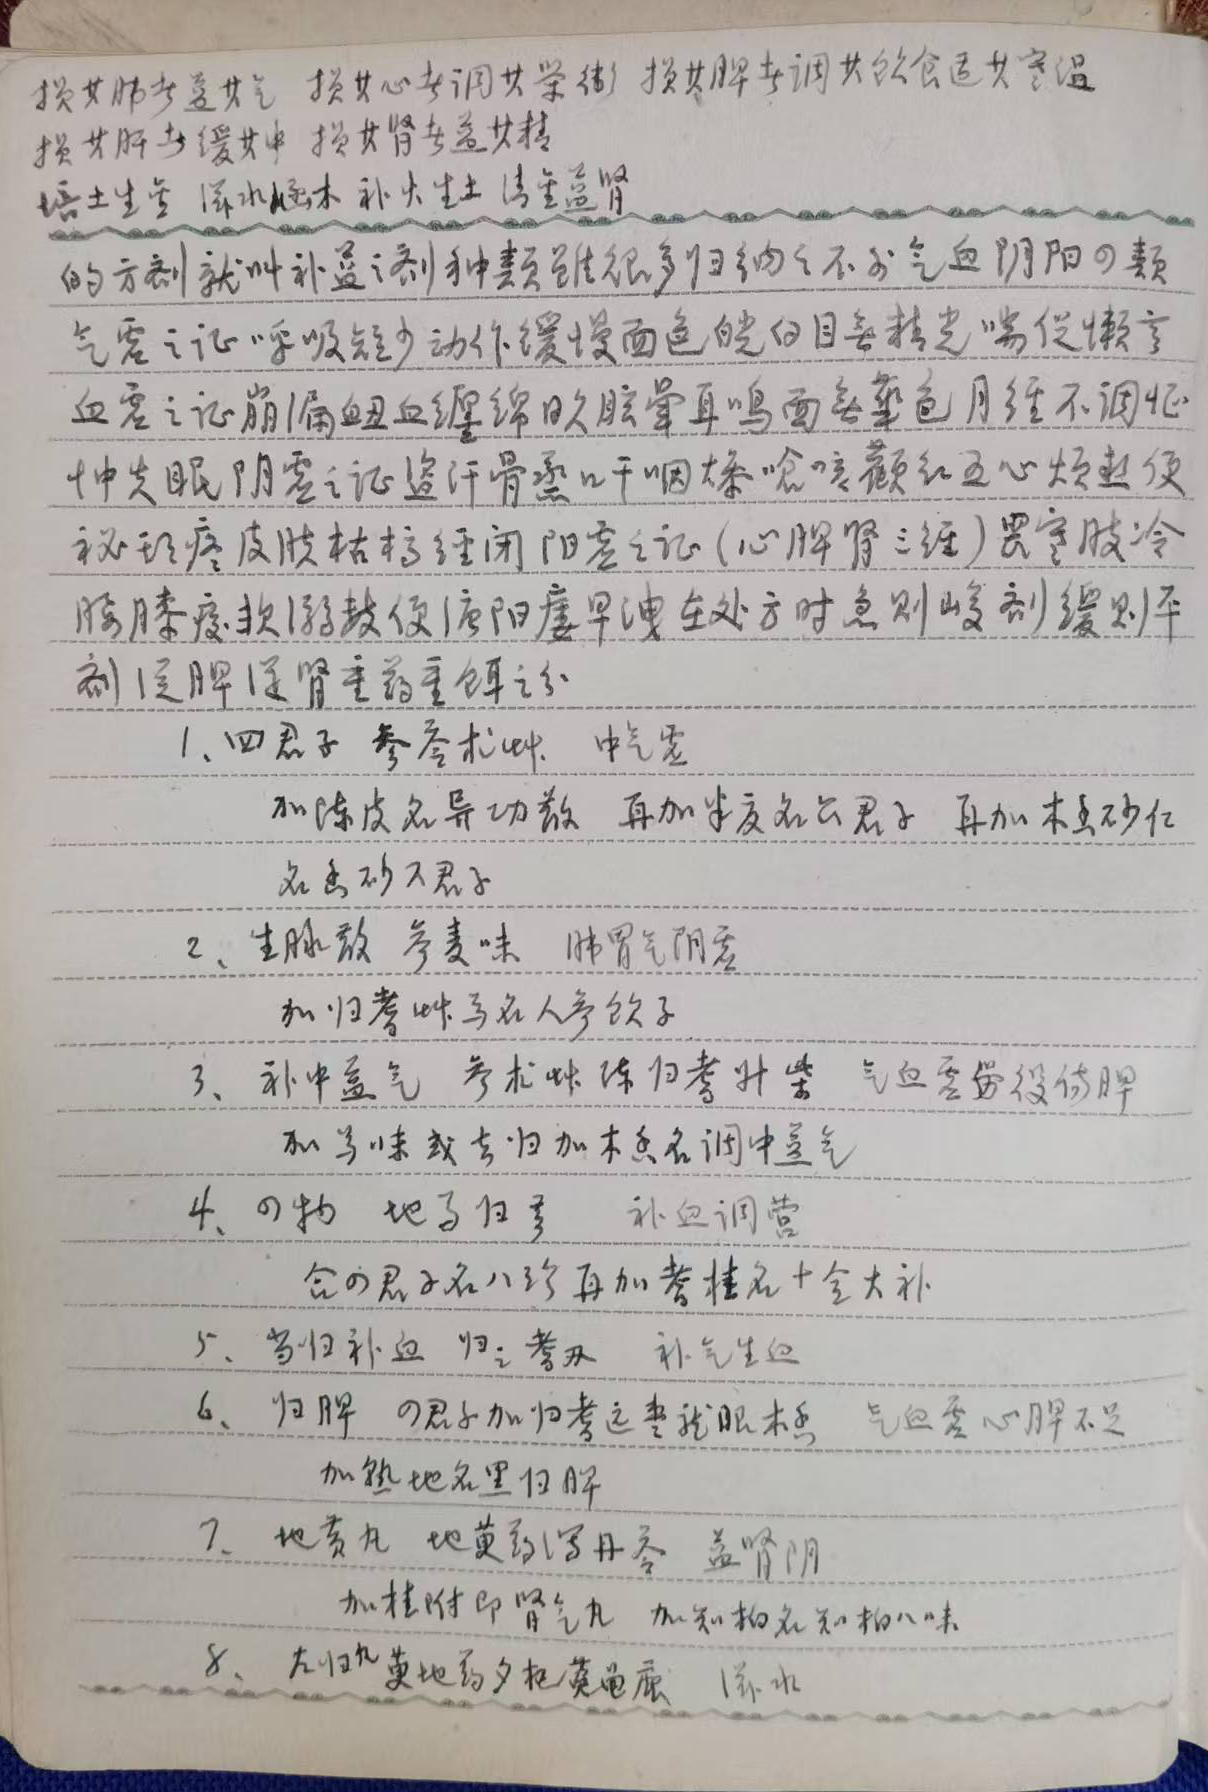 损其肺者益其气 损其心者调其荣衛 损其脾者调其饮食适其寒温
损其肝者缓其中 损其肾者益其精
培土生金 滋水涵木 补火生土 清金益肾
的方剂就叫补益之剂种类虽很多归纳之不外气血阴阳の类
气虚之证呼吸短少动作缓慢面色皖白目无精光喘促懒言
血虚之证崩漏衄血缠绵日久眩晕耳鸣面无华色月经不调怔
忡失眠阴虚之证盗汗骨蒸口干咽燥呛咳颧红五心烦热便
秘 疼皮肤枯槁经闭阳虚之证(心脾肾三经)畏寒肢冷
膝痠软溺数便溏阳痿早洩在处方时急则峻剂缓则平
剂 从脾从肾重药重饵之分
1、四君子 参苓术艸 中气虚
加陈皮名异功散 再加半夏名六君子 再加木香砂仁
名香砂六君子
2、生脉散 参麦味 肺胃气阴虚
加归耆艸芍名人参饮子
3、补中益气 参术艸陈归耆升柴 气血虚劳役伤脾
加芍味或去归加木香名调中益气
4、の物 地芍归芎 补血调营
合の君子名八珍再加耆桂名十全大补
5、当归补血 归 耆 补气生血
6、归脾 の君子加归耆远枣龙眼木香 气血虚心脾不足
加熟地名黑归脾
7、地黄丸 地萸药泻丹苓 益肾阴
加桂附即肾气丸 加知柏名知柏八味
8、左归丸 萸地药 杞 滋水